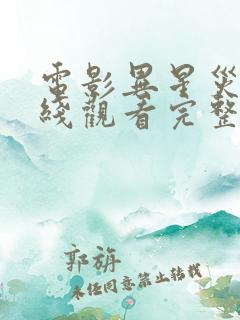 電影異星災
綫觀看完整
郭旃
未经同意禁止转载